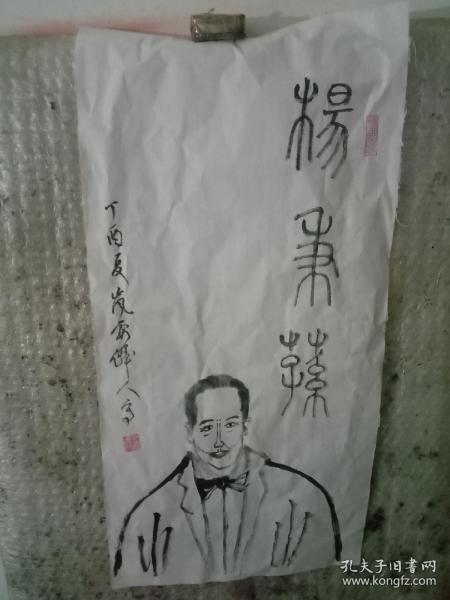 楊秉蓀
丁酉夏岚安僻人写
孔夫子旧书网
www.kongfz.com